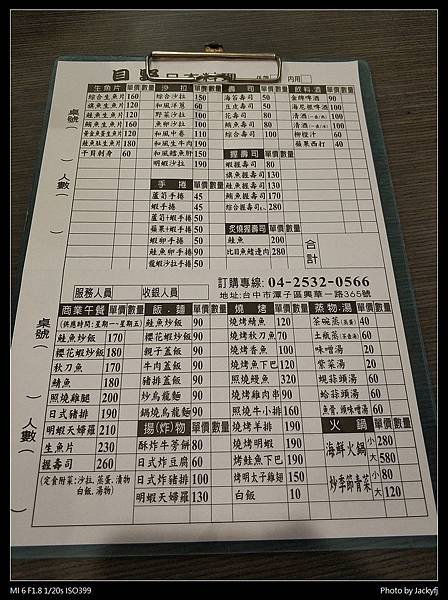 日本料理
內用
生魚片 單價 數量
綜合生魚片 160
旗魚生魚片 120
鮭魚生魚片 120
鮪魚生魚片 160
鮭魚肚生魚片 180
干貝刺身 60
沙拉 單價 數量
綜合沙拉 150
和風洋蔥 60
野菜沙拉 100
魚卵沙拉 100
和風中卷 110
和風生牛肉 190
和風鱈魚肝 150
明蝦沙拉 190
手捲 單價 數量
蘆筍手捲 45
蝦手捲 45
蘆筍+蝦手捲 50
蘋果+蝦手捲 50
蝦卵手捲 50
鮭魚卵手捲 90
龍蝦沙拉手捲 50
壽司 單價 數量
海苔壽司 50
豆皮壽司 50
花壽司 80
鮪魚壽司 80
綜合壽司 100
握壽司 單價 數量
蝦握壽司 80
旗魚握壽司 130
鮭魚握壽司 130
鮪魚握壽司 170
綜合握壽司 280
炙燒握壽司 單價 數量
鮭魚 200
比目魚鰭邊肉 280
飲料.酒 單價 數量
金牌啤酒 90
海尼根啤酒 100
清酒 100
清酒 100
柳橙汁 60
蘋果西打 40
合計
桌號
人數
服務人員
收銀人員
訂購專線: 04-2532-0566
地址:台中市潭子區興華一路365號
桌號
人數
商業午餐 單價 數量
(供應時間:星期一~星期五)
鮭魚炒飯 170
櫻花蝦炒飯 180
秋刀魚 170
鯖魚 180
照燒雞腿 200
日式豬排 190
明蝦天婦羅 210
生魚片 230
握壽司 260
(定食附菜:沙拉.蒸蛋.漬物
白飯.湯物)
飯.麵 單價 數量
鮭魚炒飯 90
櫻花蝦炒飯 90
親子蓋飯 90
牛肉蓋飯 90
豬排蓋飯 90
炒烏龍麵 90
鍋燒烏龍麵 90
揚(炸)物 單價 數量
酥炸牛蒡餅 80
日式炸豆腐 60
日式炸豬排 100
明蝦天婦羅 130
燒烤 單價 數量
燒烤鯖魚 80
燒烤秋刀魚 70
燒烤香魚 100
燒烤鮭魚下巴 120
照燒鰻魚 320
燒烤雞肉串 90
照燒牛小排 160
燒烤羊排 190
燒烤明蝦 190
烤鮭魚下巴 190
烤明太子雞翅 150
白飯 10
蒸物.湯 單價 數量
茶碗蒸 40
土瓶蒸 60
味噌湯 20
紫菜湯 20
蜆蒜頭湯 60
蛤蒜頭湯 60
火鍋 單價 數量
海鮮火鍋 小 280
大 580
炒季節青菜 小 80
大 120
MI 6 F1.8 1/20s ISO399
Photo by Jackyfj